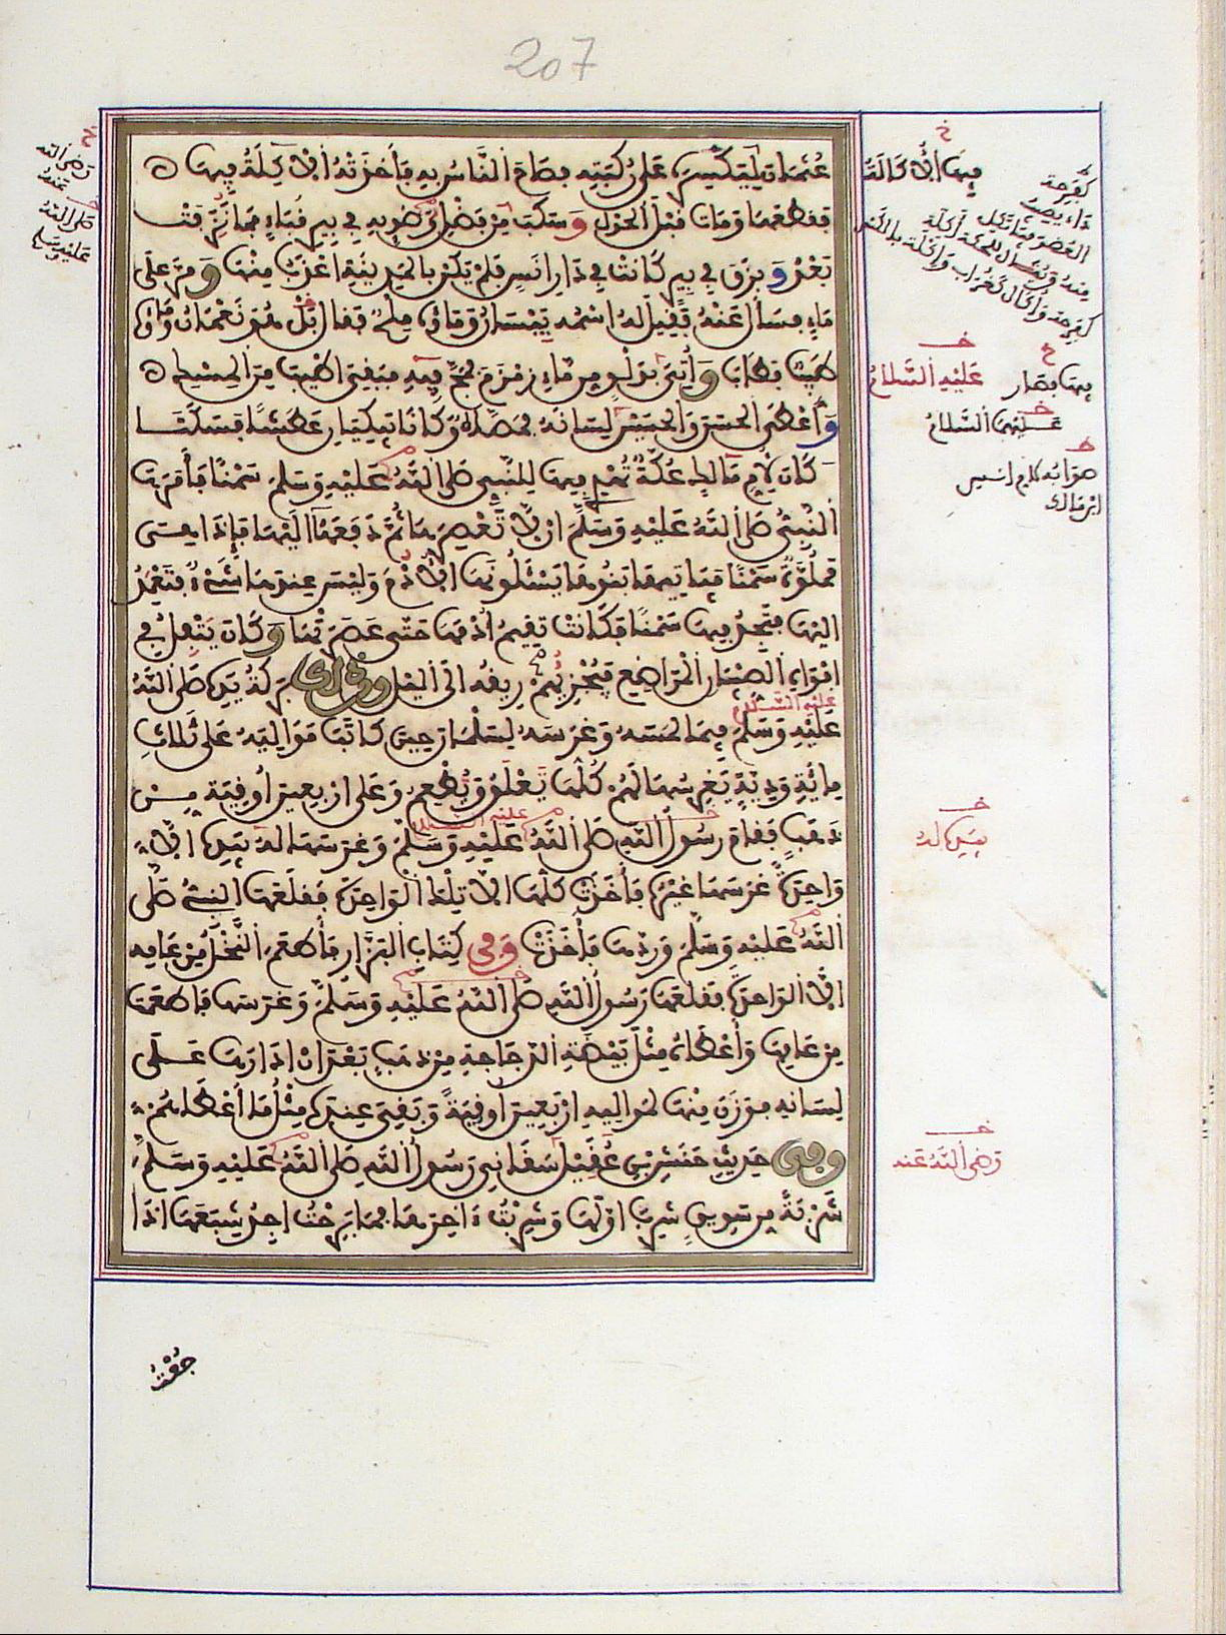 207
عُثْمَانَ لِيَكْسِرَهُ عَلَى رُكْبَتِهِ فَصَاحَ النَّاسُ بِهِ فَأَخَذَتْهُ الْأَكِلَةُ فِيهَا
فَقَطَعَهَا وَمَاتَ قَبْلَ الْحَوْلِ وَسَكَبَ مِنْ فَضْلِ وَضُوئِهِ فِي بِيرِ قُبَاءٍ فَمَا نَزَفَتْ
بَعْدُ وَبَزَقَ فِي بِيرٍ كَانَتْ فِي دَارِ أَنَسٍ فَلَمْ يَكُنْ بِالْمَدِينَةِ أَعْذَبُ مِنْهَا وَمَرَّ عَلَى
مَاءٍ فَسَأَلَ عَنْهُ فَقِيلَ لَهُ اسْمُهُ بَيْسَانُ وَمَاؤُهُ مِلْحٌ فَقَالَ بَلْ هُوَ نَعْمَانُ وَمَاؤُهُ
طَيِّبٌ فَطَابَ وَأُتِيَ بِدَلْوٍ مِنْ مَاءِ زَمْزَمَ فَمَجَّ فِيهِ فَبَقِيَ أَطْيَبَ مِنَ الْمِسْكِ
وَأَعْطَى الْحَسَنَ وَالْحُسَيْنَ لِسَانَهُ فَمَصَّاهُ وَكَانَا يَبْكِيَانِ عَطَشًا فَسَكَتَا
كَانَ لِأُمِّ مَالِكٍ عُكَّةٌ تُهْدِي فِيهَا لِلنَّبِيِّ صَلَّى اللهُ عَلَيْهِ وَسَلَّمَ سَمْنًا فَأَمَرَهَا
النَّبِيُّ صَلَّى اللهُ عَلَيْهِ وَسَلَّمَ أَنْ لَا تَعْصِرَهَا ثُمَّ دَفَعَهَا إِلَيْهَا فَإِذَا هِيَ
مَمْلُوَّةٌ سَمْنًا فَيَأْتِيهَا بَنُوهَا يَسْأَلُونَهَا الْأُدْمَ وَلَيْسَ عِنْدَهَا شَيْءٌ فَتَعْمِدُ
إِلَيْهَا فَتَجِدُ فِيهَا سَمْنًا فَكَانَتْ تُقِيمُ أُدْمَهَا حَتَّى عَصَرَتْهَا وَكَانَ يَتْفِلُ فِي
أَفْوَاهِ الصِّبْيَانِ الْمَرَاضِعِ فَيُجْزِيهُمْ رِيقُهُ إِلَى اللَّيْلِ وَمِنْ ذَلِكَ بَرَكَةُ يَدِهِ صَلَّى اللهُ
عَلَيْهِ السَّلَامُ
عَلَيْهِ وَسَلَّمَ فِيمَا لَمَسَهُ وَغَرَسَهُ لِسَلْمَانَ حِينَ كَاتَبَهُ مَوَالِيهِ عَلَى ثَلَاثِ
مِائَةِ وَدِيَّةٍ يَغْرِسُهَا لَهُمْ كُلُّهَا تَعْلَقُ وَتُطْعِمُ وَعَلَى أَرْبَعِينَ أُوقِيَةً مِنْ
عَلَيْهِ السَّلَامُ
ذَهَبٍ فَقَامَ رَسُولُ اللهِ صَلَّى اللهُ عَلَيْهِ وَسَلَّمَ وَغَرَسَهَا لَهُ بِيَدِهِ إِلَّا
وَاحِدَةً غَرَسَهَا غَيْرُهُ فَأَخَذَتْ كُلُّهَا إِلَّا تِلْكَ الْوَاحِدَةَ فَقَلَعَهَا النَّبِيُّ صَلَّى
اللهُ عَلَيْهِ وَسَلَّمَ وَرَدَّهَا فَأَخَذَتْ وَفِي كِتَابِ الْبَزَّارِ فَأَطْعَمَ النَّخْلُ مِنْ عَامِهِ
إِلَّا الْوَاحِدَةَ فَقَلَعَهَا رَسُولُ اللهِ صَلَّى اللهُ عَلَيْهِ وَسَلَّمَ وَغَرَسَهَا فَأَطْعَمَتْ
مِنْ عَامِهَا وَأَعْطَاهُ مِثْلَ بَيْضَةِ الدَّجَاجَةِ مِنْ ذَهَبٍ بَعْدَ أَنْ أَدَارَهَا عَلَى
لِسَانِهِ فَوَزَنَ مِنْهَا لِمَوَالِيهِ أَرْبَعِينَ أُوقِيَةً وَبَقِيَ عِنْدَهُ مِثْلُ مَا أَعْطَاهُمْ
وَفِي حَدِيثِ حَنَشِ بْنِ عُقَيْلٍ سَقَانِي رَسُولُ اللهِ صَلَّى اللهُ عَلَيْهِ وَسَلَّمَ
شَرْبَةً مِنْ سَوِيقٍ شَرِبَ أَوَّلَهَا وَشَرِبْتُ آخِرَهَا فَمَا بَرِحْتُ أَجِدُ شِبَعَهَا إِذَا
جُعْتُ
رَضِيَ اللهُ
عَنْهُ
صَلَّى اللهُ
عَلَيْهِ وَسَلَّمَ
كَفَرِحَة
عَلَيْهِ السَّلَامُ
عَلَيْهِمَا السَّلَامُ
ابن مالك
بِيَدِهِ لَهُ
رَضِيَ اللهُ عَنْهُ